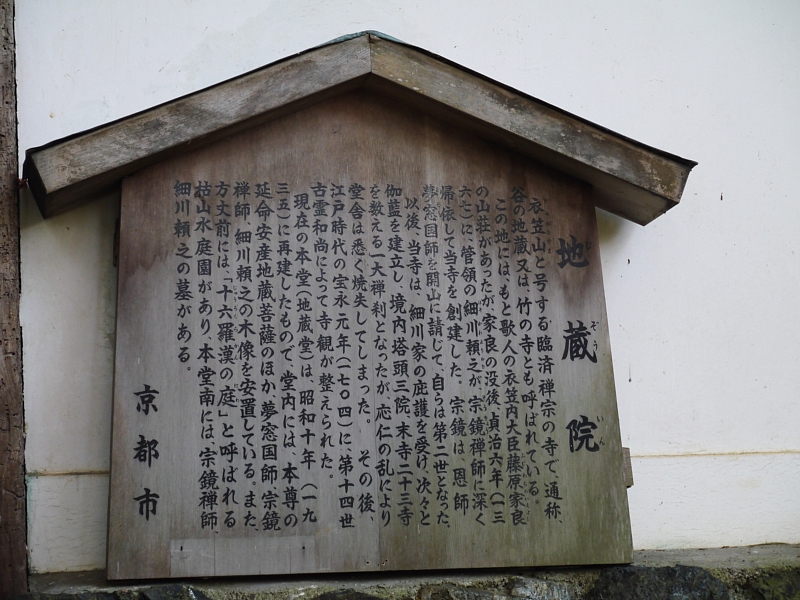 地蔵院
じぞういん
衣笠山と号する臨済禅宗の寺で、通称、
谷の地蔵又は、竹の寺とも呼ばれている。
この地には、もと歌人の衣笠内大臣藤原家良
の山荘があったが、家良の没後、貞治六年(一三
六七)に、管領の細川頼之が、宗鏡禅師に深く
帰依して当寺を創建した。宗鏡は、恩師
夢窓国師を開山に請じて、自らは第二世となった。
以後、当寺は、細川家の庇護を受け、次々と
伽藍を建立し、境内塔頭三院、末寺二十三寺
を数える一大禅刹となったが、応仁の乱により
堂舎は悉く焼失してしまった。その後、
江戸時代の宝永元年(一七〇四)に第十四世
古霊和尚によって寺観が整えられた。
現在の本堂(地蔵堂)は、昭和十年(一九
三五)に再建したもので、堂内には、本尊の
延命安産地蔵菩薩のほか、夢窓国師、宗鏡
禅師、細川頼之の木像を安置している。また、
方丈前には、「十六羅漢の庭」と呼ばれる
枯山水庭園があり、本堂南には、宗鏡禅師、
細川頼之の墓がある。
京都市